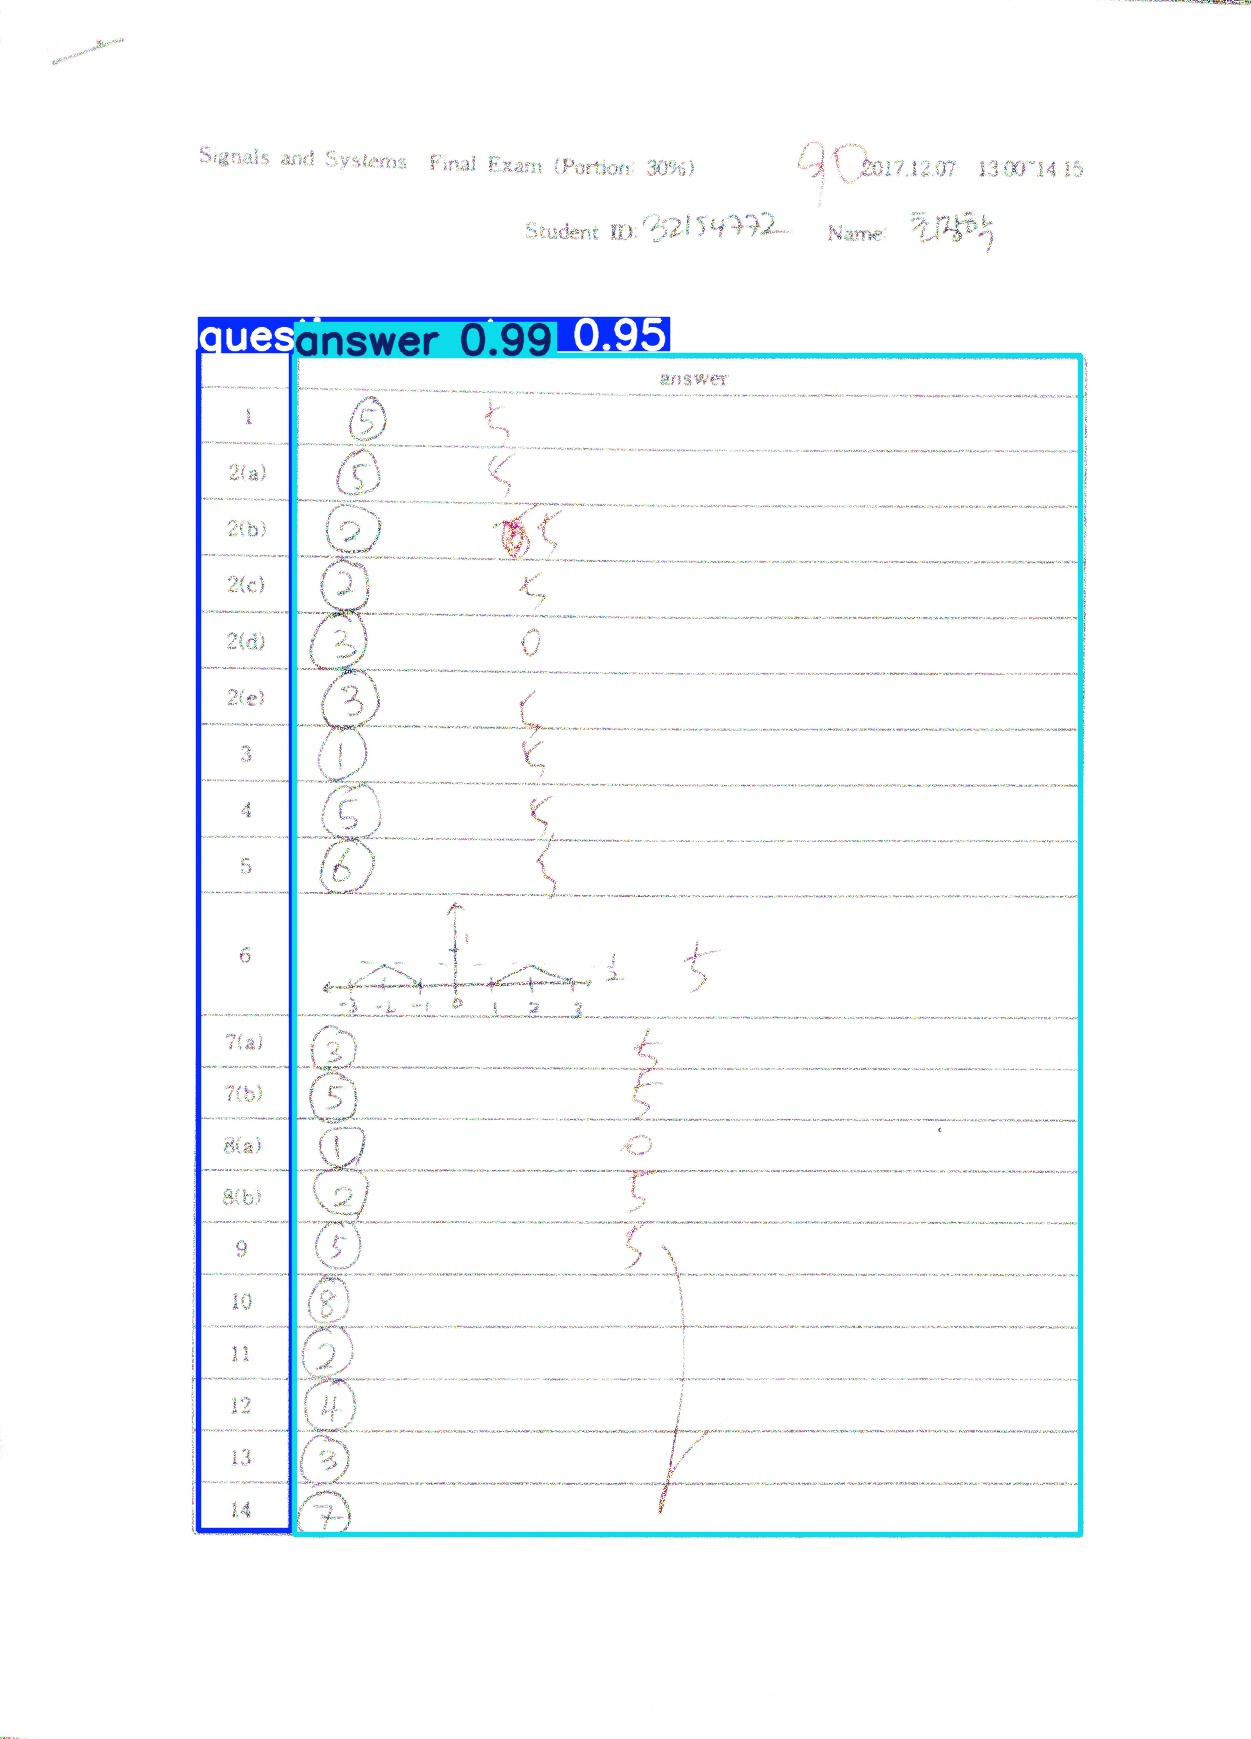 Signals and Systems Final Exam (Portion: 30%) 90 2017.12.07 13:00~14:15
Student ID: 32154772 Name:
answer 0.99 0.95
answer
1 ⑤ 5
2(a) ⑤ 5
2(b) ② 5
2(c) ② 5
2(d) ③ 0
2(e) ③ 5
3 ① 5
4 ⑤ 5
5 ⑥ 5
6 1 1/2 5
-3 -2 -1 0 1 2 3
7(a) ③ 5
7(b) ⑤ 5
8(a) ① 0
8(b) ② 5
9 ⑤ 5
10 ⑧
11 ②
12 ④
13 ③
14 ⑦